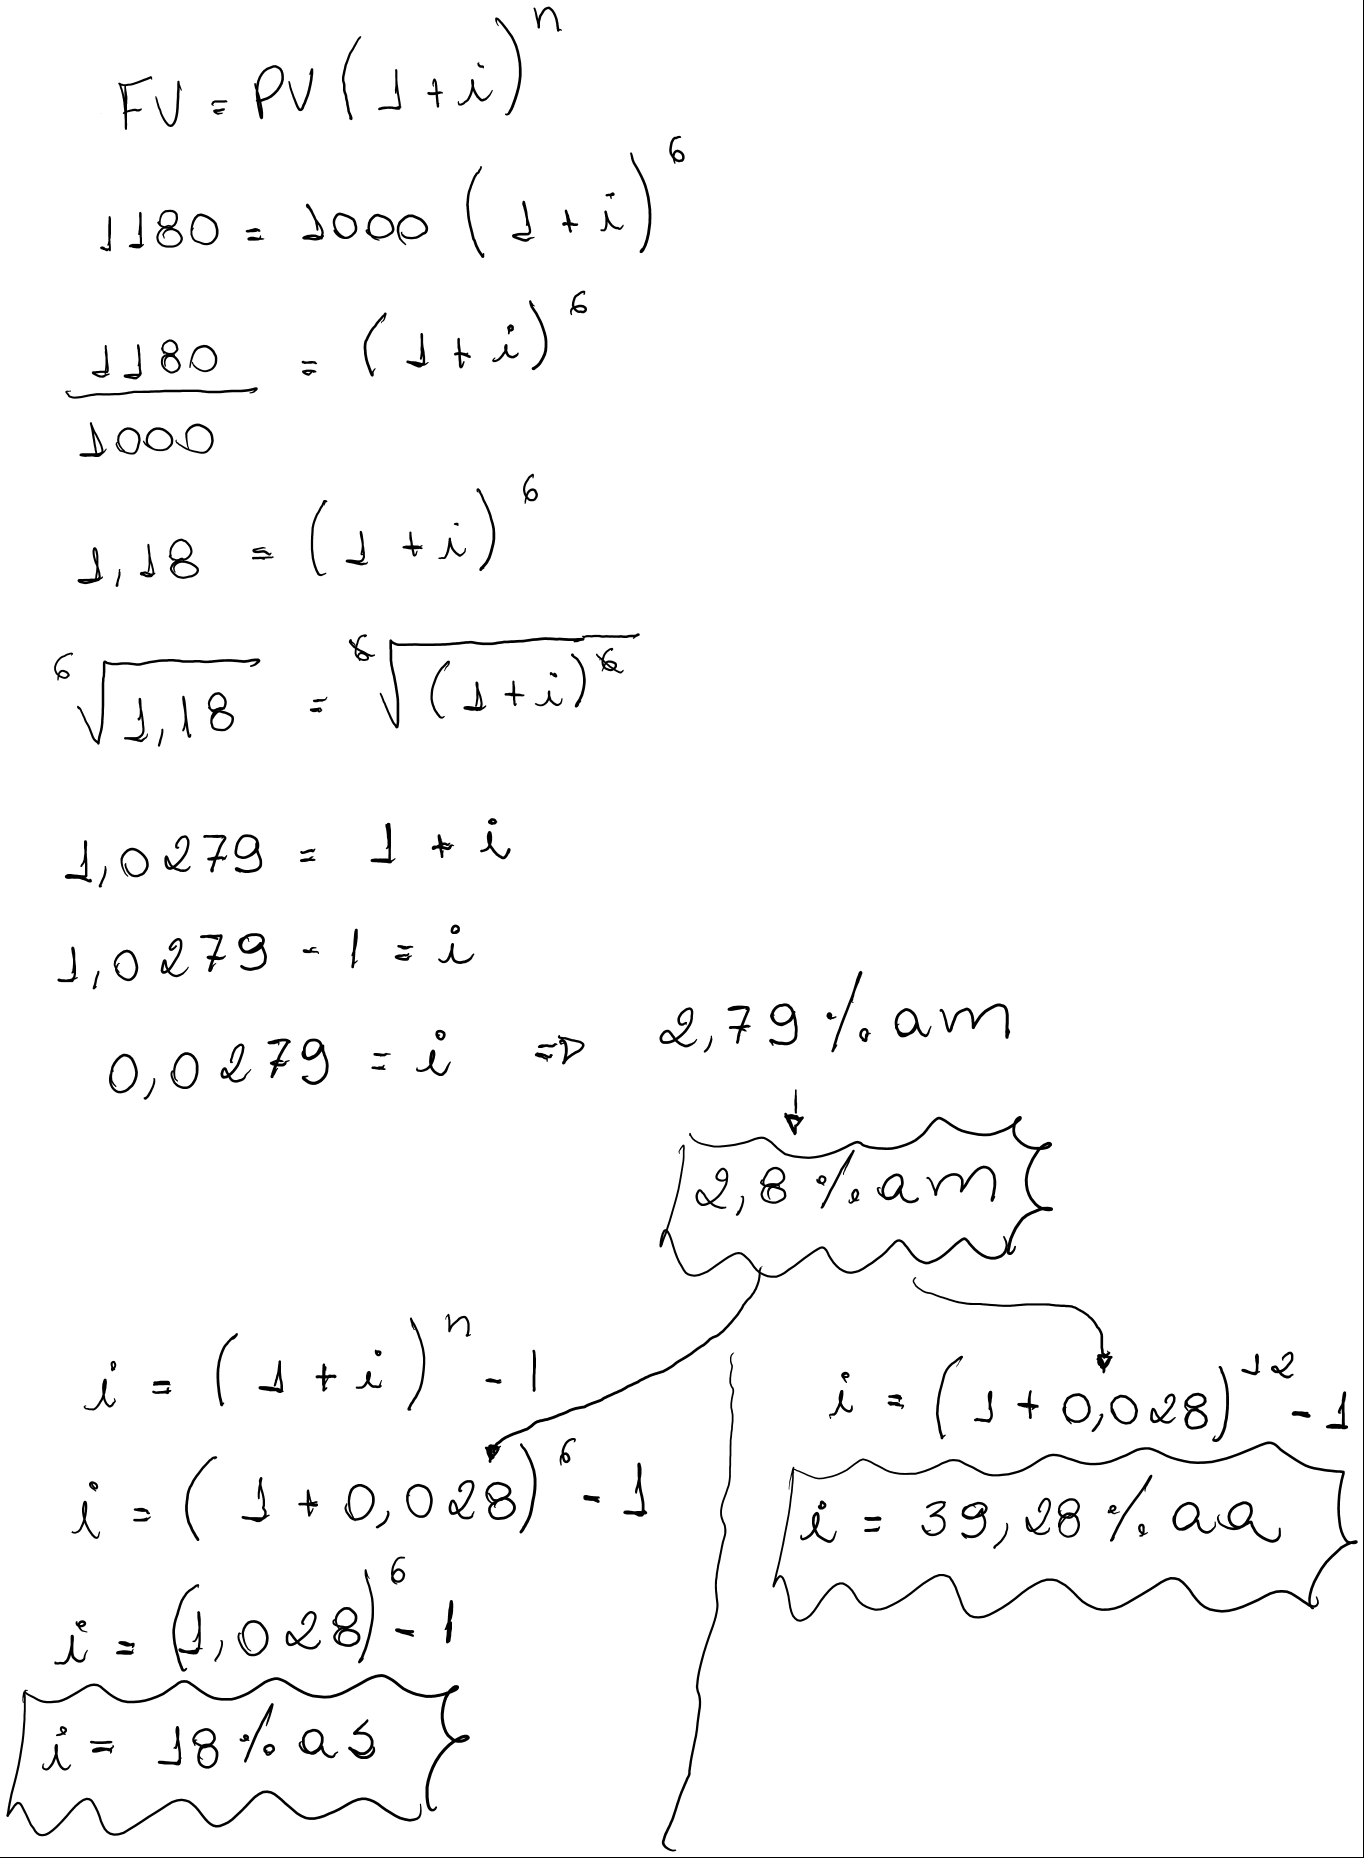 FV = PV (1 + i)^n
1180 = 1000 (1 + i)^6
1180/1000 = (1 + i)^6
1,18 = (1 + i)^6
⁶√1,18 = ⁶√(1 + i)^6
1,0279 = 1 + i
1,0279 - 1 = i
0,0279 = i ⇒ 2,79 % am
2,8 % am
i = (1 + i)^n - 1
i = (1 + 0,028)^6 - 1
i = (1,028)^6 - 1
i = 18 % as
i = (1 + 0,028)^12 - 1
i = 39,28 % aa